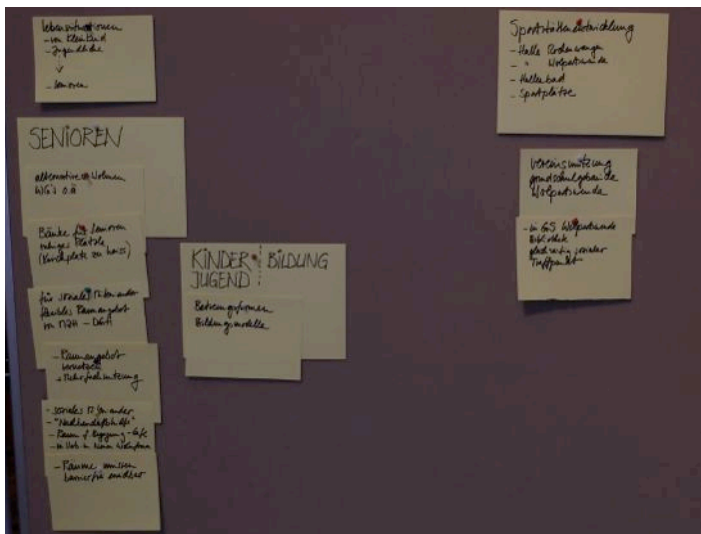 Lebenssituationen
- von Kleinkind
- Jugendliche
- Senioren
SENIOREN
alternatives Wohnen
WG's o.ä
Bänke für Senioren
ruhiges Plätzle
(Kirchplatz zu heiss)
für soziales Miteinander
flexibles Raumangebot
im MZH - DGH
- Raumangebot
vernetzen
→ Mehrfachnutzung
- soziales Miteinander
- "Nachbarschaftshilfe"
- Raum f. Begegnung - Café
- Räume müssen
barrierefrei
KINDER BILDUNG
JUGEND
Betreuungsformen
Bildungsmodelle
Sportstättenentwicklung
- Halle
- " Wolpertswende
- Hallenbad
- Sportplätze
Vereinsnutzung
Grundschulgebäude
Wolpertswende
- in GS Wolpertswende
Bibliothek
gleichzeitig sozialer
Treffpunkt